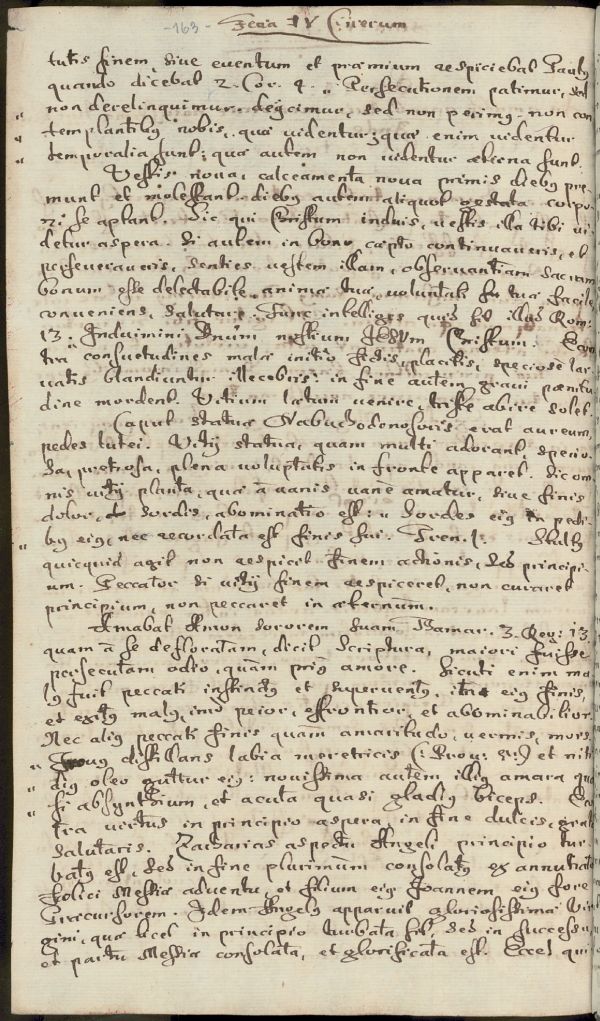 -163- Feria IV Cinerum
tutis finem, sive eventum et præmium respiciebat Pauly
quando dicebat 2. Cor. 4. „ Persecutionem patimur, sed
„ non derelinquimur. dejicimur, sed non perimy. non con
„ templantiby nobis, quæ videntur; quæ enim videntur
„ temporalia sunt; quæ autem non videntur æterna sunt.
Vestis nova, calceamenta nova primis dieby pre-
munt et molestant. dieby autem aliquot gestata corpo-
ri se aptant. Sic qui Christum induis, vestis illa tibi vi-
detur aspera. Si autem in bono cæpto continuaveris, et
perseveraveris, senties vestem illam, observantiam sacram
bonum esse delectabile animæ tuæ, voluntati tuæ facile
conveniens, salutare. Tunc intelliges quis sit illud Rom:
13. Induimini Dnum nostrum JESVM Christum. Econ
tra consuetudines malæ initio placitis, speciose lar
vatis blandiuntur illecebris: in fine autem gravi pænitu
dine mordent. Vitium latum venire, triste abire solet.
Caput statuæ Nabuchodonosoris erat aureum,
pedes lutei. Vitij statua, quam multi adorant, specio-
sa, pretiosa, plena voluptatis in fronte apparet. Sic om
nis vitij planta, quæ à vanis vanè amatur, sive finis
dolor, et sordis, abominatio est: „ Sordes eiy in pedi-
„ by eiy, nec recordata est finis sui. Tren. 1. Stulty
quicquid agit non respicit finem actionis, sed principi-
um. Peccator si vitij finem respiceret, non curaret
principium, non peccaret in æternum.
Amabat Amon sororem suam Thamar. 3. Reg: 13.
quam à se defloratam, dicit Scriptura, maiori fuisse
persecutam odio, quàm priy amore. Sicuti enim ma
ly fuit peccati instincty et superventy, ita eiy finis,
et exity maly, imo peior, effrontior, et abominabilior.
Nec aliy peccati finis quam amaritudo, vermis, mors.
„ Favy distillans labia meretricis (: Prov: 5:) et niti
„ diy oleo guttur eiy: novissima autem illiy amara qua
„ si absynthium, et acuta quasi gladiy biceps. Con
tra virtus in principio aspera, in fine dulcis, grata
salutaris. Zacharias aspectu Angeli principio tur-
baty est, sed in fine plurimum consolaty ex annuntiato
felici Messiæ adventu, et filium eiy Joannem eiy fore
Præcursorem. Idem Angely apparuit gloriosissimæ Vir
gini, quæ licet in principio turbata sit, sed in successu
et partu Messiæ consolata, et glorificata est. Ecce! qui